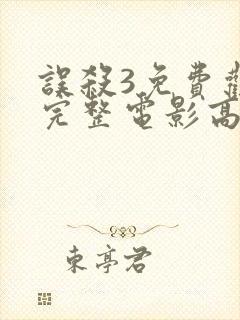 誤殺3免費
完整電影高
東亭君